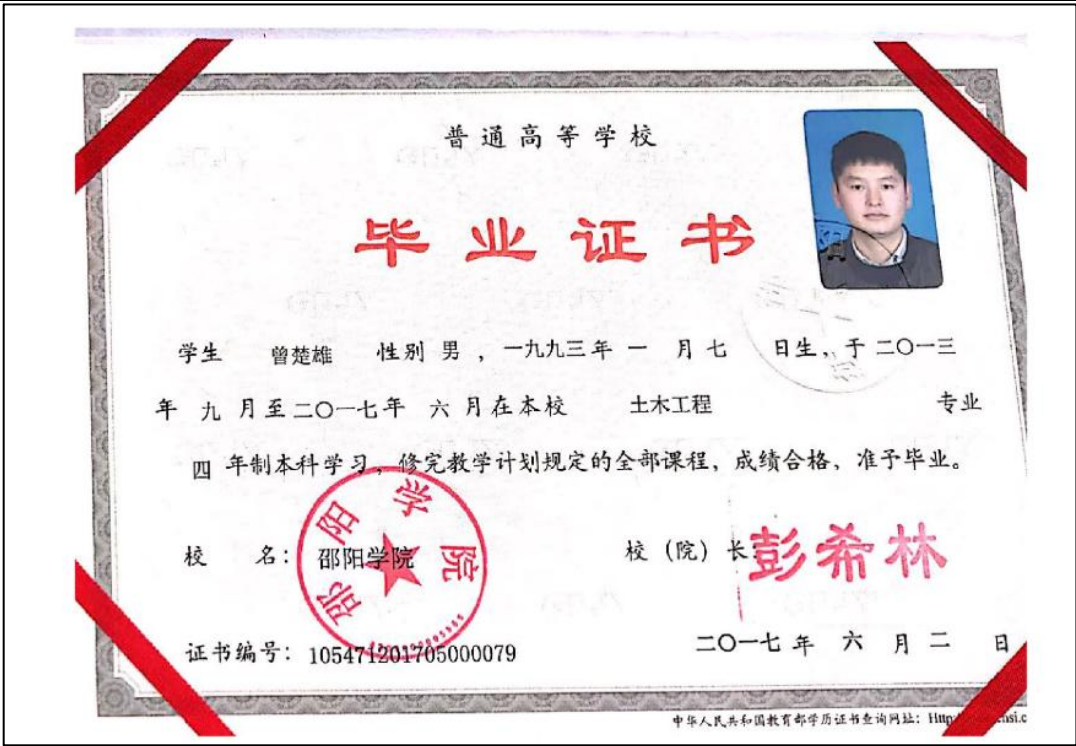 普通高等学校
毕业证书
学生 曾楚雄 性别 男 ，一九九三年 一 月 七 日生，于二〇一三
年 九 月至二〇一七年 六 月在本校 土木工程 专业
四 年制本科学习，修完教学计划规定的全部课程，成绩合格，准予毕业。
校 名：邵阳学院
邵阳学院
校（院）长：彭希林
证书编号：105471201705000079
二〇一七年 六 月 二 日
中华人民共和国教育部学历证书查询网址：Http